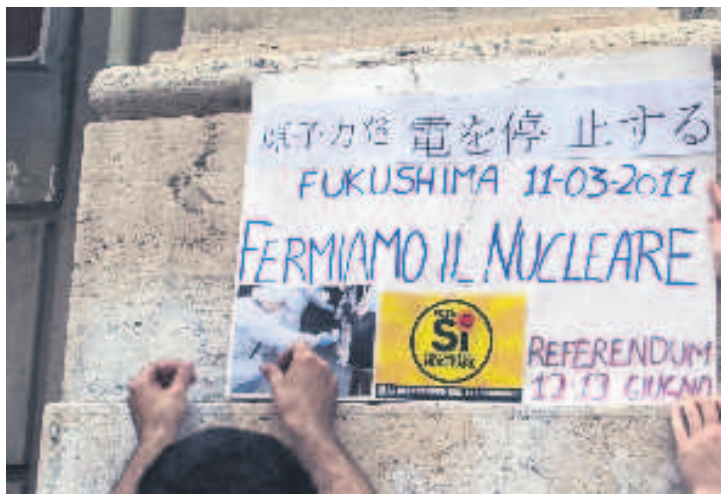 原子力発 電を停止する
FUKUSHIMA 11-03-2011
FERMIAMO IL NUCLEARE
Sì
REFERENDUM
12.13 GIUGNO